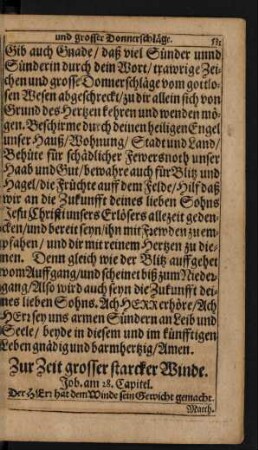 und grosser Donnerschläge.
Gib auch Gnade / daß viel Sünder unnd
Sünderin durch dein Wort / trawrige Zei-
chen und grosse Donnerschläge vom gottlo-
sen Wesen abgeschreckt / zu dir allein sich von
Grund des Hertzen kehren und wenden mö-
gen. Beschirme durch deinen heiligen Engel
unser Hauß / Wohnung / Stadt und Land /
Behüte für schädlicher Fewersnoth unser
Haab und Gut / bewahre auch für Blitz und
Hagel / die Früchte auff dem Felde / Hilf daß
wir an die Zukunfft deines lieben Sohns
Jesu Christi unsers Erlösers allezeit geden-
cken / und bereit seyn / ihn mit Frewden zu em
pfahen / und dir mit reinem Hertzen zu die-
nen. Denn gleich wie der Blitz auffgehet
vom Auffgang / und scheinet biß zum Nieder-
gang / Also wird auch seyn die Zukunfft dei-
nes lieben Sohns. Ach HERR erhöre / Ach
HErr sey uns armen Sündern an Leib und
Seele / beyde in diesem und im künfftigen
Leben gnädig und barmhertzig / Amen.
Zur Zeit grosser starcker Winde.
Job. am 28. Capitel.
Der HErr hat dem Winde sein Gewicht gemacht.
Matth.